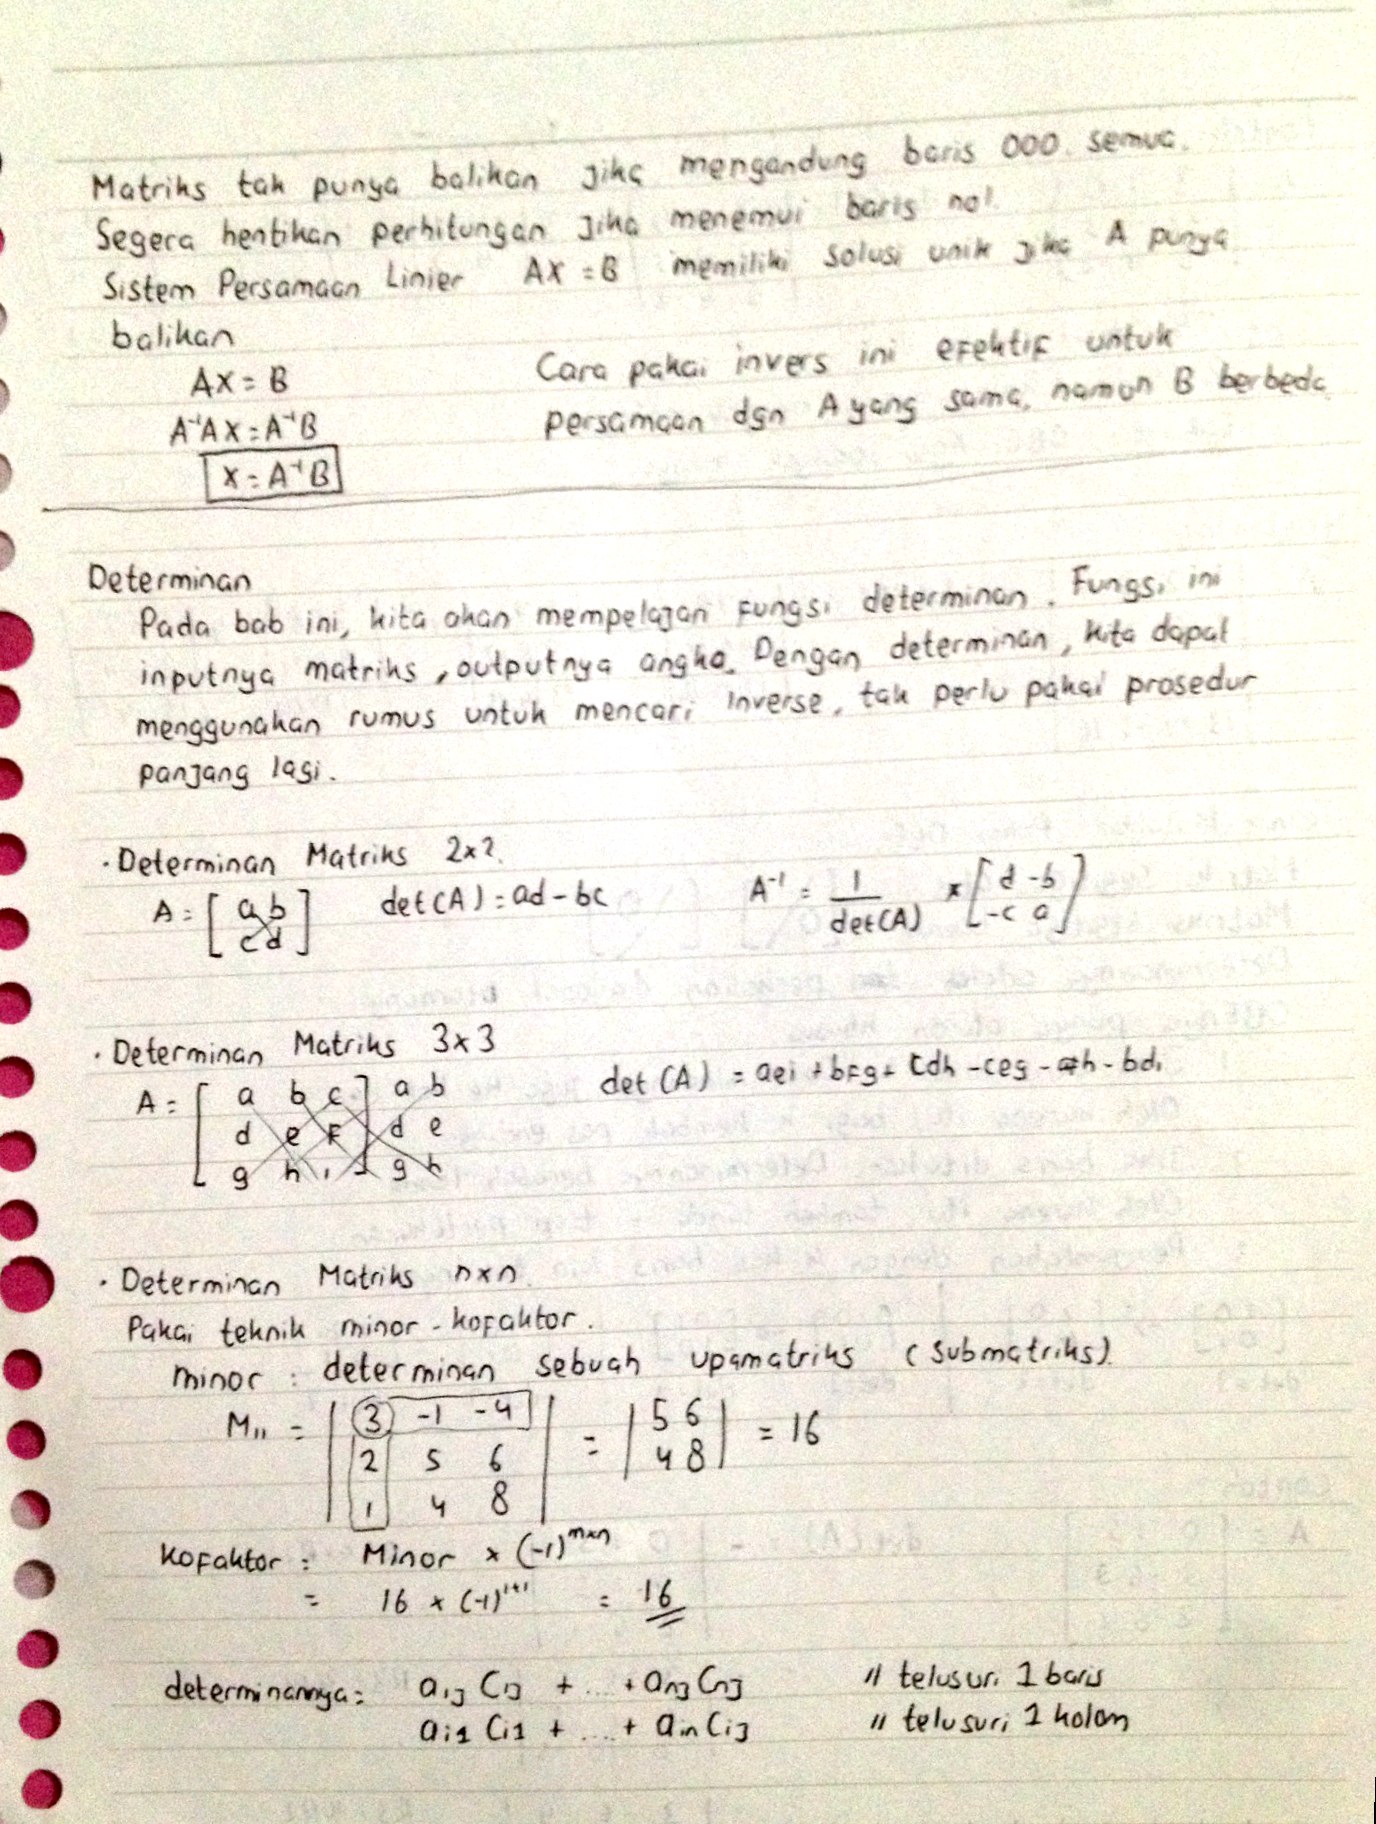 Matriks tak punya balikan jika mengandung baris 000 semua.
Segera hentikan perhitungan jika menemui baris nol.
Sistem Persamaan Linier AX = B memiliki solusi unik jika A punya
balikan
AX = B
A⁻¹AX = A⁻¹B
X = A⁻¹B
Cara pakai invers ini efektif untuk
persamaan dgn A yang sama, namun B berbeda
Determinan
Pada bab ini, kita akan mempelajari fungsi determinan. Fungsi ini
inputnya matriks, outputnya angka. Dengan determinan, kita dapat
menggunakan rumus untuk mencari Inverse, tak perlu pakai prosedur
panjang lagi.
· Determinan Matriks 2x2.
A = [ a b ] det(A) = ad - bc A⁻¹ = 1/det(A) x [ d -b ]
[ c d ] [ -c a ]
· Determinan Matriks 3x3
A = [ a b c ] a b det(A) = aei + bfg + cdh - ceg - afh - bdi
[ d e f ] d e
[ g h i ] g h
· Determinan Matriks nxn.
Pakai teknik minor - kofaktor.
minor : determinan sebuah upamatriks (submatriks).
M₁₁ = | 3 -1 -4 | = | 5 6 | = 16
| 2 5 6 | | 4 8 |
| 1 4 8 |
Kofaktor : Minor x (-1)ᵐˣⁿ
= 16 x (-1)¹⁺¹ = 16
determinannya = a₁ⱼ C₁ⱼ + ... + aₙⱼ Cₙⱼ // telusuri 1 baris
aᵢ₁ Cᵢ₁ + .... + aᵢₙ Cᵢⱼ // telusuri 1 kolom